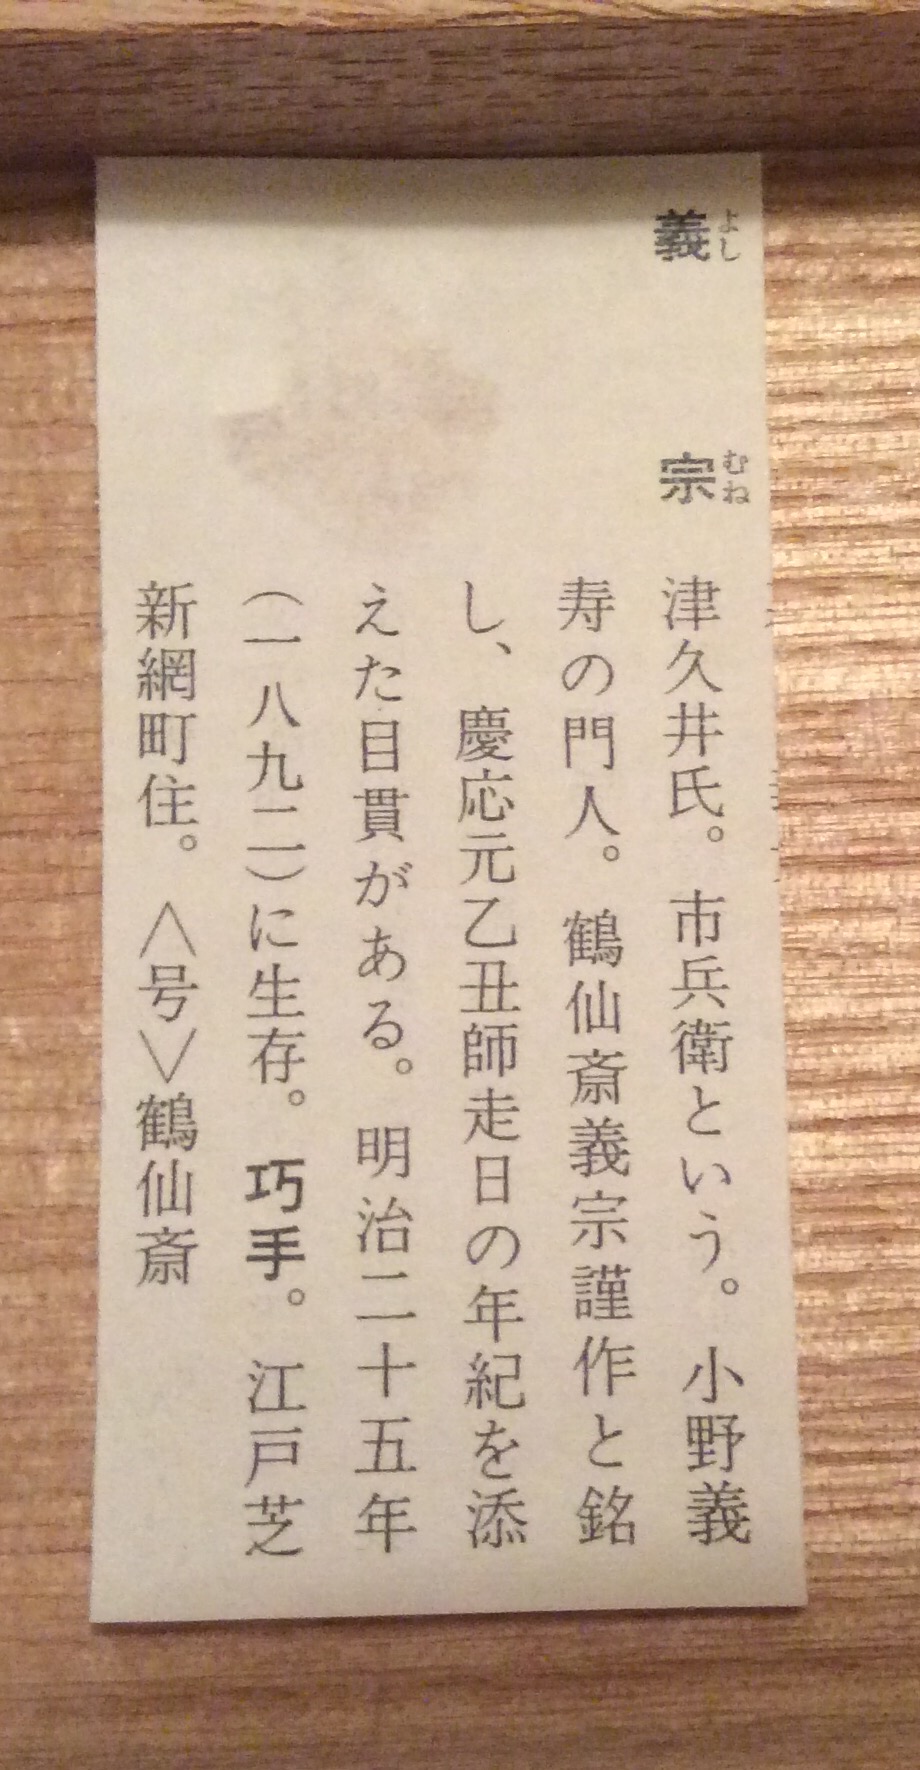 義宗
よしむね
津久井氏。市兵衛という。小野義
寿の門人。鶴仙斎義宗謹作と銘
し、慶応元乙丑師走日の年紀を添
えた目貫がある。明治二十五年
(一八九二)に生存。巧手。江戸芝
新網町住。〈号〉鶴仙斎